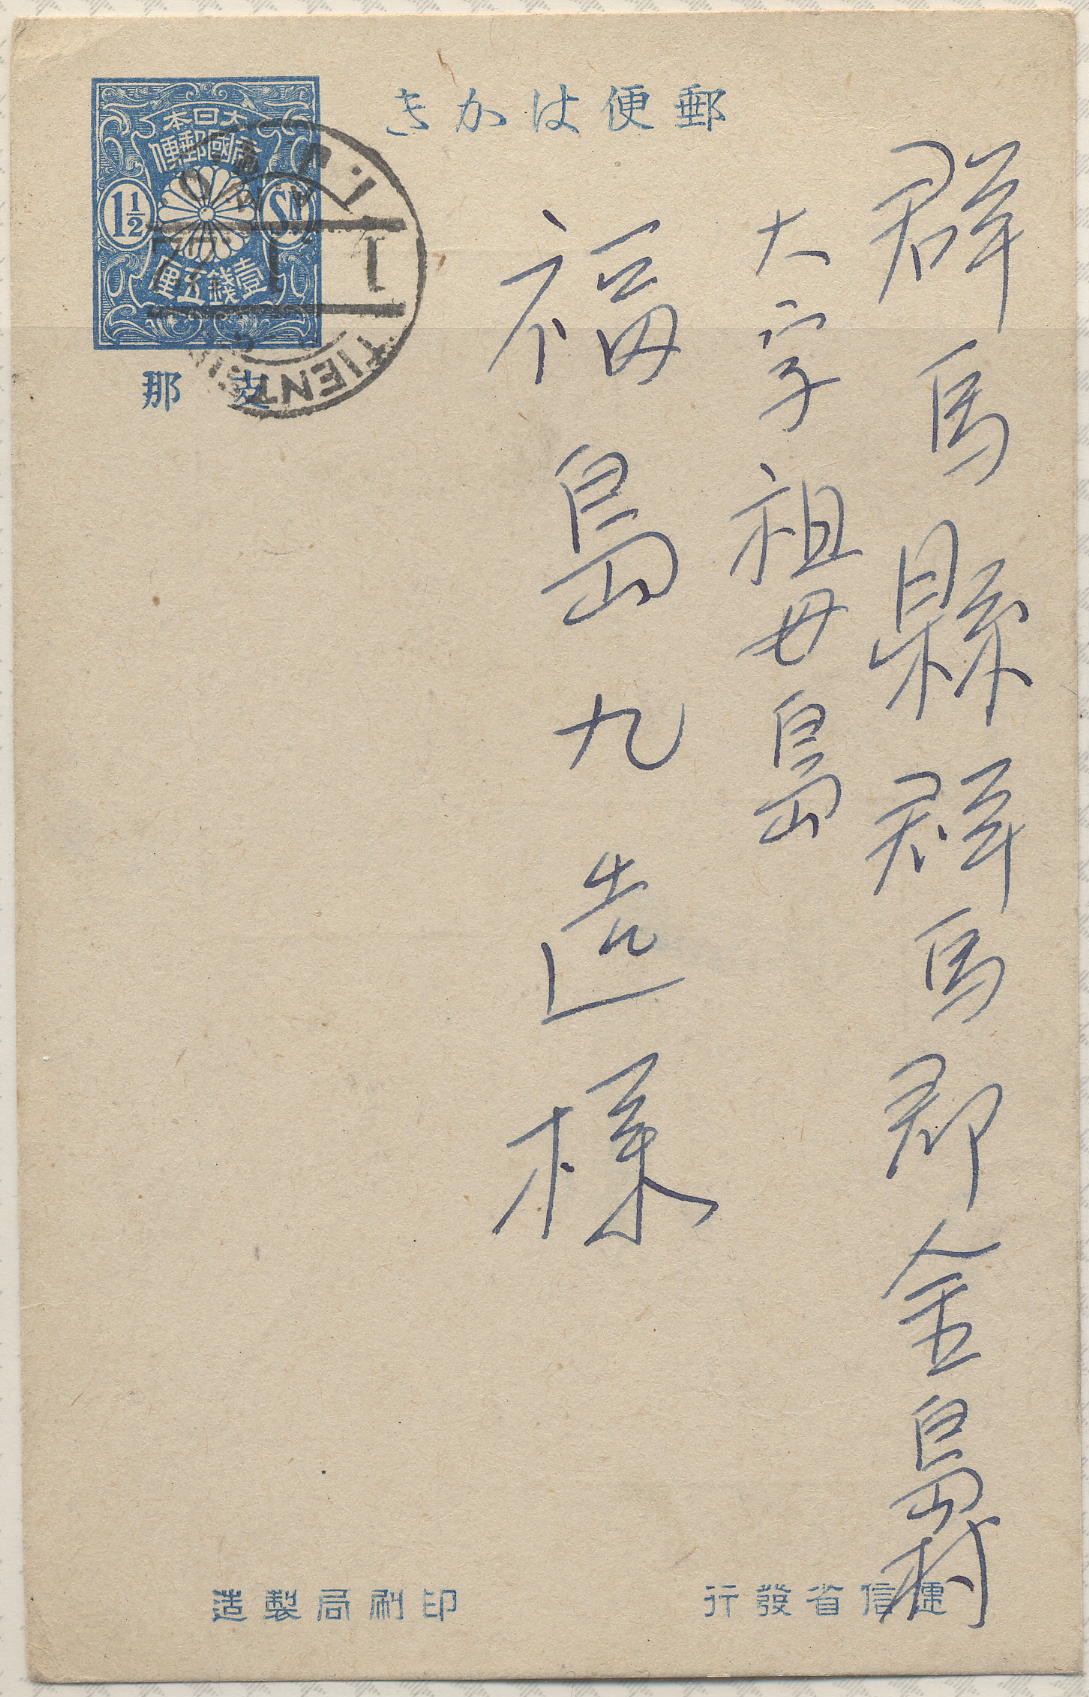 郵便はかき
大日本
帝國郵便
1½ SN
壹錢五厘
支那
TIENTSIN
I.J.P.O.
群馬縣群馬郡金島村
大字祖母島
福島九造様
逓信省發行
印刷局製造